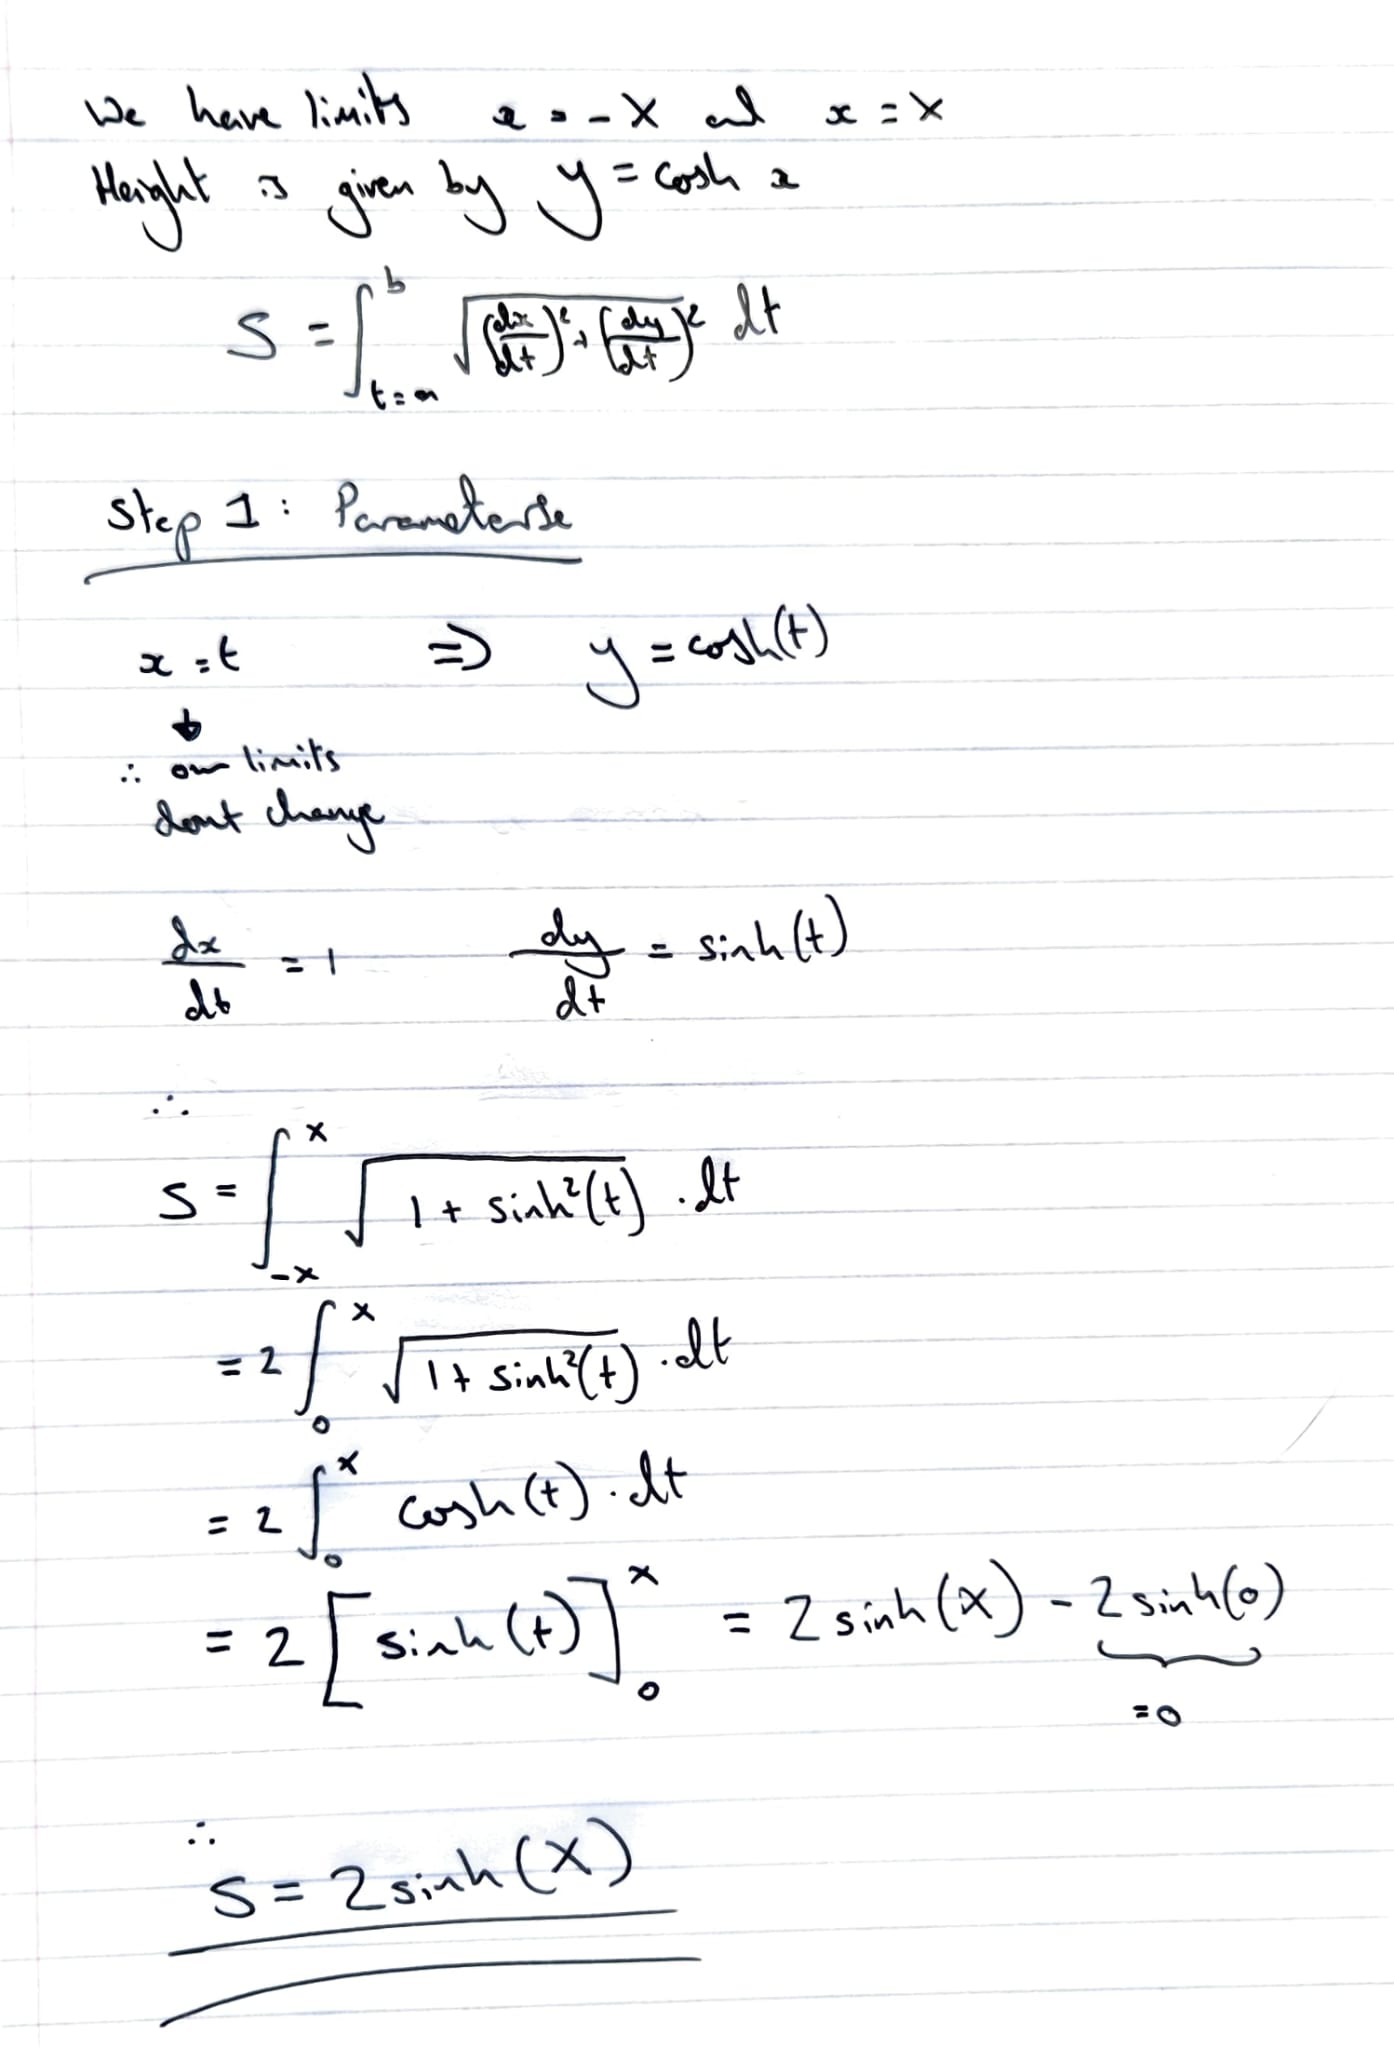 We have limits x = -X and x = X
Height is given by y = cosh x
S = ∫_{t=a}^{b} √((dx/dt)² + (dy/dt)²) dt
Step 1: Parameterise
x = t ⇒ y = cosh(t)
↓
∴ our limits
dont change
dx/dt = 1 dy/dt = sinh(t)
∴
S = ∫_{-X}^{X} √(1 + sinh²(t)) . dt
= 2 ∫_{0}^{X} √(1 + sinh²(t)) . dt
= 2 ∫_{0}^{X} cosh(t) . dt
= 2 [sinh(t)]_{0}^{X} = 2 sinh(X) - 2 sinh(0)
= 0
∴
S = 2 sinh(X)